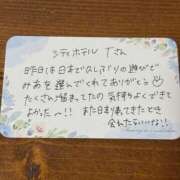 シティホテル Tさん
昨日は日本でひしぶりの遊びで
みあを選んでくれてありがとう
たくさん溜まってたの気持ちよくできて
よかった〜!! また日本帰ってきたとき
会えたらいいな!!